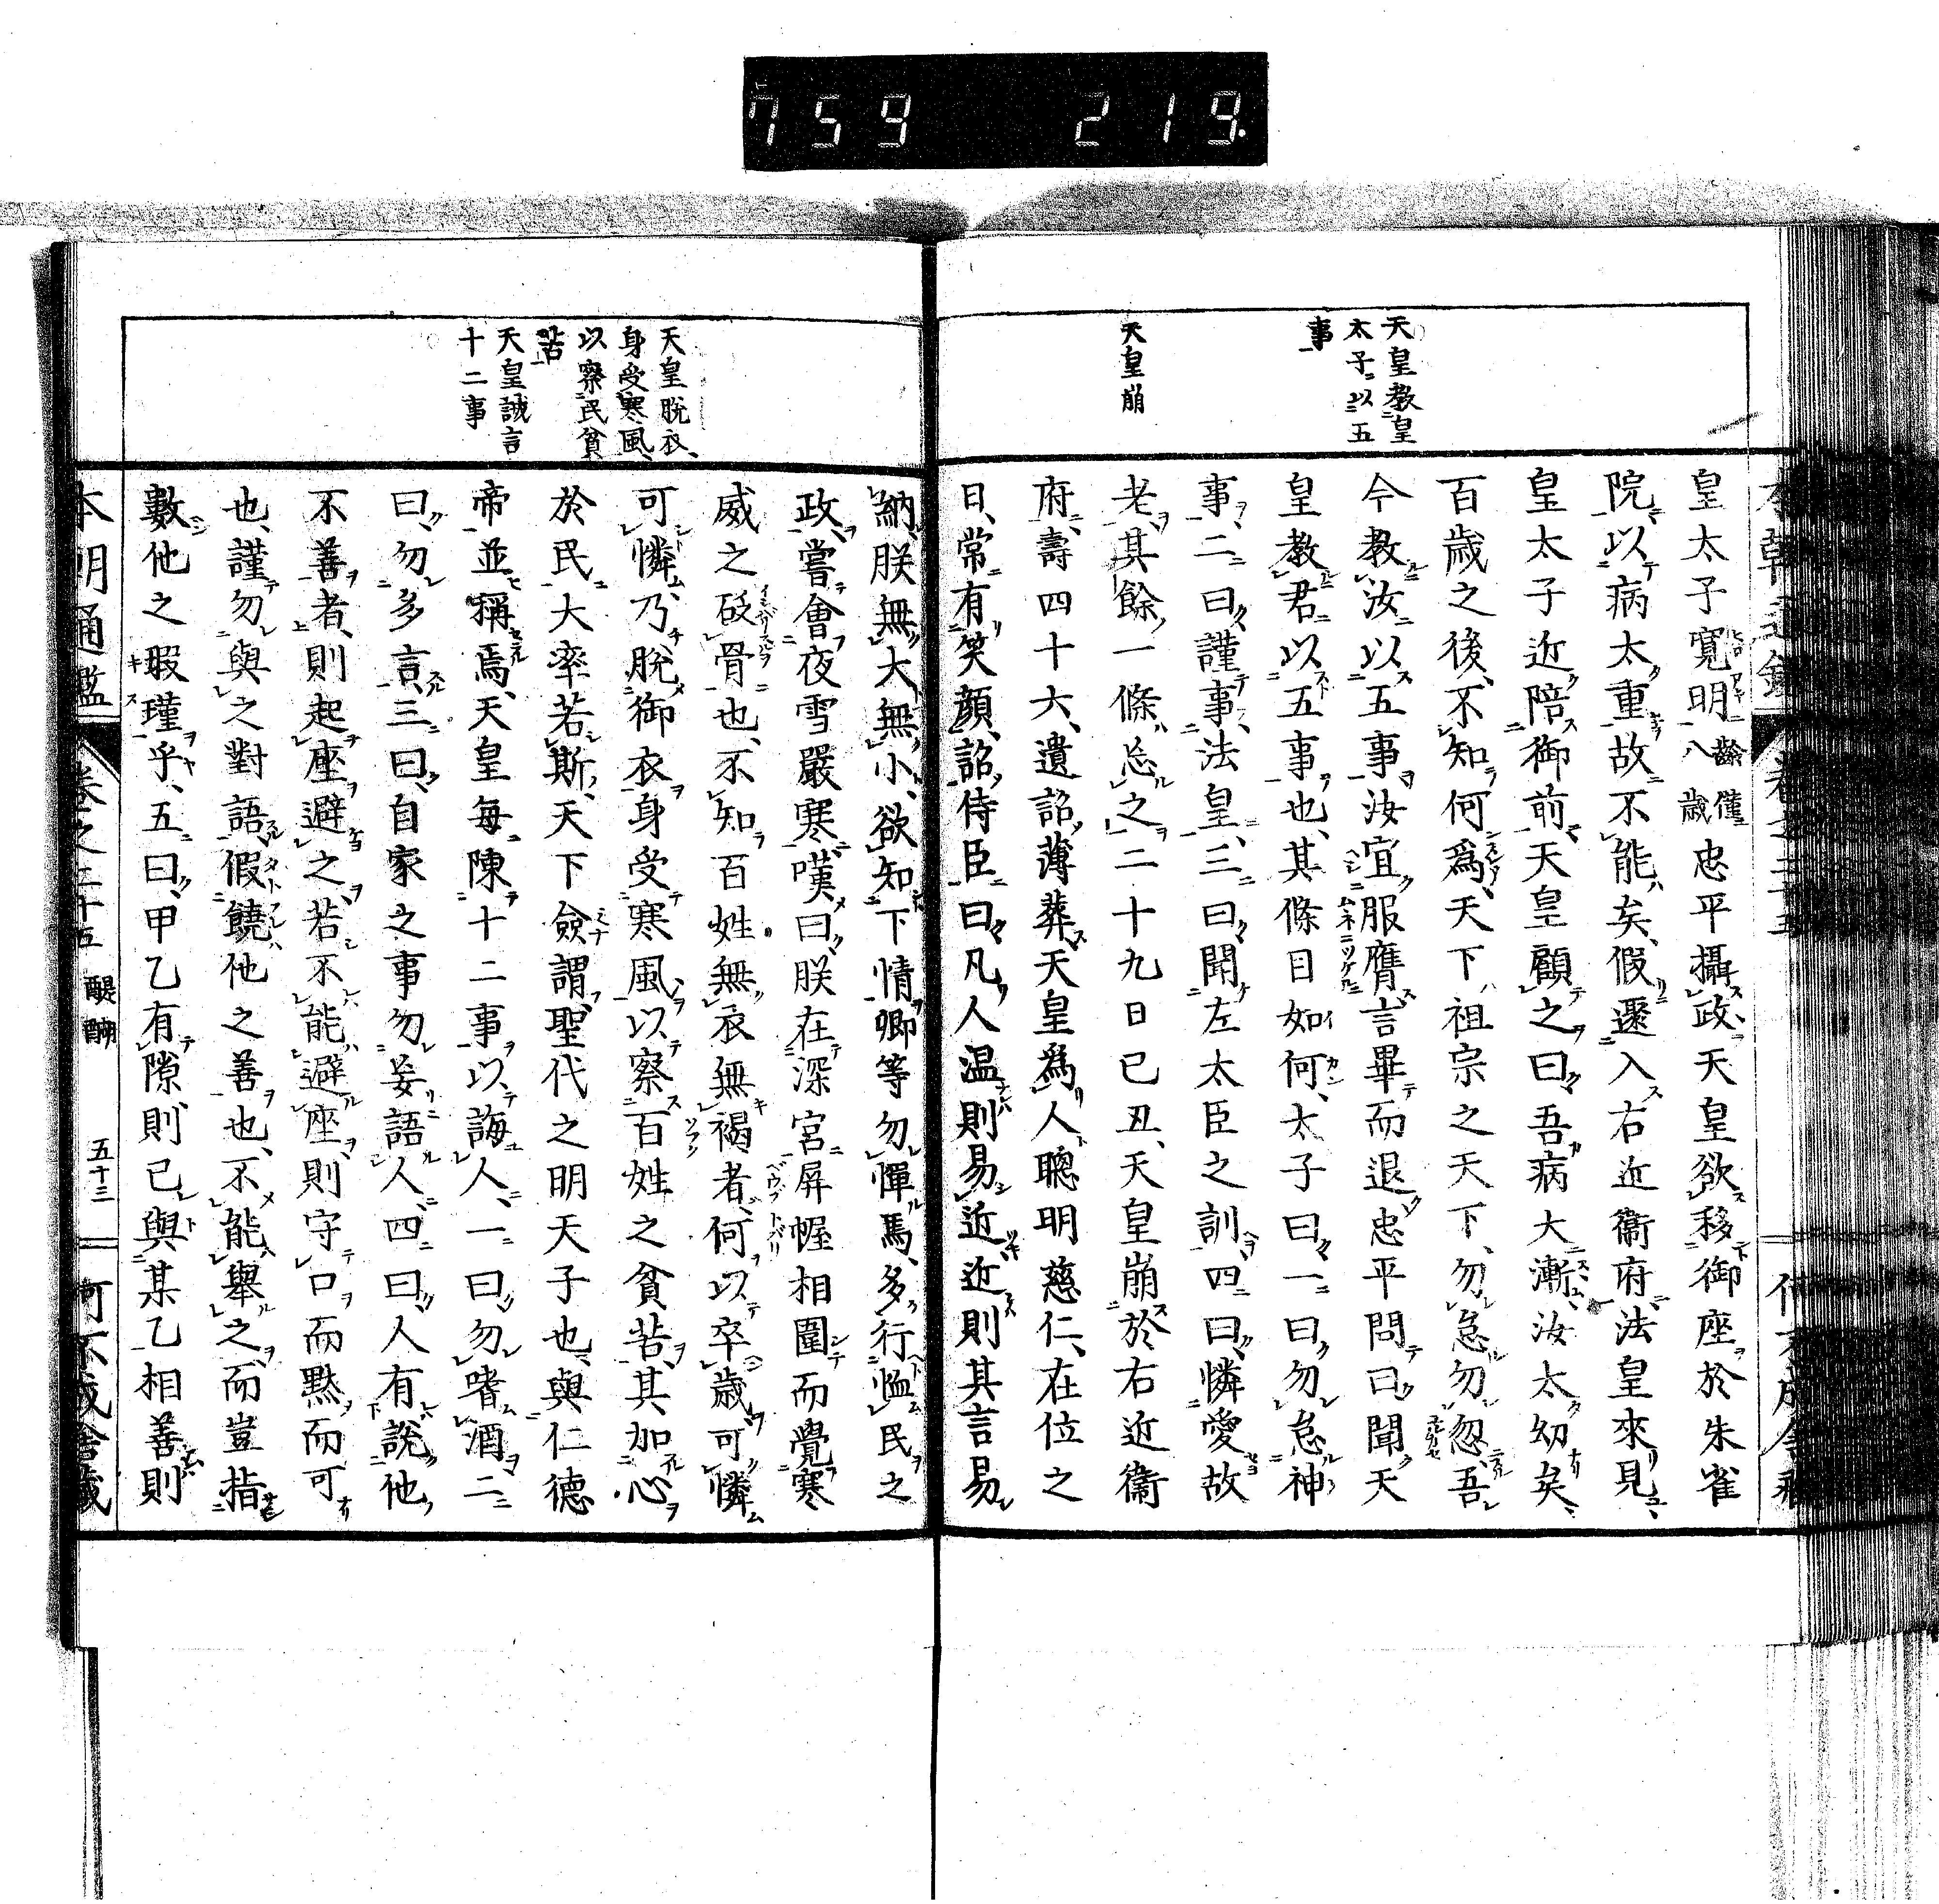 759 219.
天皇教皇
太子以五
事
天皇崩
皇太子寛明八歳齡僅忠平攝政天皇欲移御座於朱雀
院以病太重故不能矣假遷入右近衞府法皇來見
皇太子近陪御前天皇顧之曰吾病大漸汝太幼矣
百歳之後不知何爲天下祖宗之天下勿怠勿忽吾
今教汝以五事汝宜服膺言畢而退忠平問曰聞天
皇教君以五事也其條目如何太子曰一曰勿怠神
事二曰謹事法皇三曰聞左太臣之訓四曰憐愛故
老其餘一條忘之二十九日己丑天皇崩於右近衞
府壽四十六遺詔薄葬天皇爲人聰明慈仁在位之
日常有笑顔詔侍臣曰凡人温則易近近則其言易
天皇脱衣
身受寒風
以察民貧
苦
天皇誡言
十二事
納朕無大無小欲知下情卿等勿憚焉多行恤民之
政嘗會夜雪嚴寒嘆曰朕在深宮屏幄相圍而覺寒
威之砭骨也不知百姓無衣無褐者何以卒歳可憐
可憐乃脱御衣身受寒風以察百姓之貧苦其加心
於民大率若斯天下僉謂聖代之明天子也與仁德
帝並稱焉天皇毎陳十二事以誨人一曰勿嗜酒二
曰勿多言三曰自家之事勿妄語人四曰人有説他
不善者則起座避之若不能避座則守口而默而可
也謹勿與之對語假饒他之善也不能擧之而豈指
數他之瑕瑾乎五曰甲乙有隙則已與某乙相善則
本朝通鑑 卷之二十五 醍醐 五十三